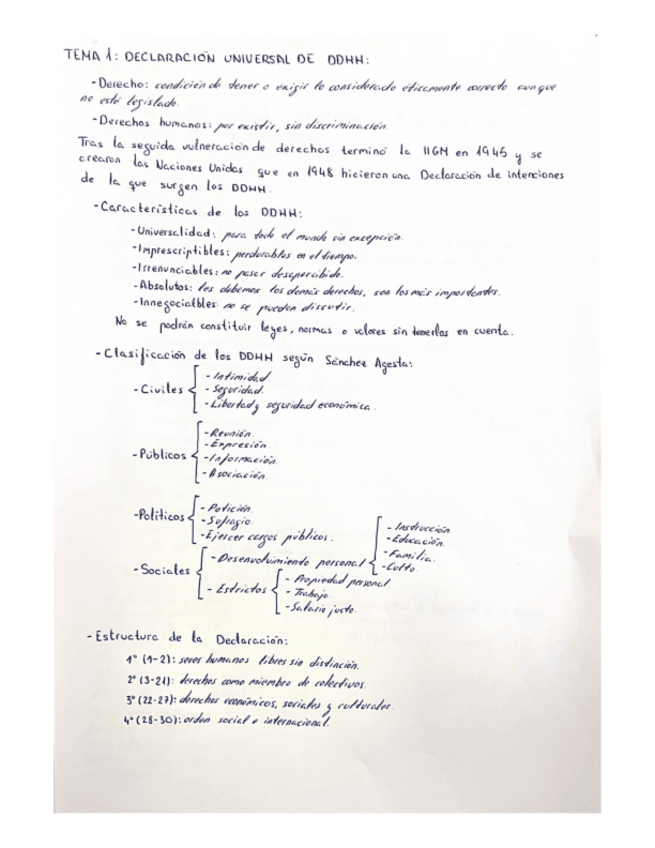 TEMA 1: DECLARACIÓN UNIVERSAL DE DDHH:
- Derecho: condición de tener o exigir lo considerado éticamente correcto aunque
no esté legislado.
- Derechos humanos: por existir, sin discriminación.
Tras la seguida vulneración de derechos terminó la IIGM en 1945 y se
crearon las Naciones Unidas que en 1948 hicieron una Declaración de intenciones
de la que surgen los DDHH.
- Características de los DDHH:
- Universalidad: para todo el mundo sin excepción.
- Imprescriptibles: perdurables en el tiempo.
- Irrenunciables: no pasar desapercibido.
- Absolutos: les debemos los demás derechos, son los más importantes.
- Innegociables: no se pueden discutir.
No se podrán constituir leyes, normas o valores sin tenerlos en cuenta.
- Clasificación de los DDHH según Sánchez Agesta:
- Civiles
- Intimidad.
- Seguridad.
- Libertad y seguridad económica.
- Públicos
- Reunión.
- Expresión
- Información.
- Asociación.
- Políticos
- Petición.
- Sufragio
- Ejercer cargos públicos.
- Sociales
- Desenvolvimiento personal
- Instrucción.
- Educación.
- Familia.
- Culto
- Estrictos
- Propiedad personal
- Trabajo.
- Salario justo.
- Estructura de la Declaración:
1º (1-2): seres humanos libres sin distinción.
2º (3-21): derechos como miembro de colectivos.
3º (22-27): derechos económicos, sociales y culturales.
4º (28-30): orden social e internacional.